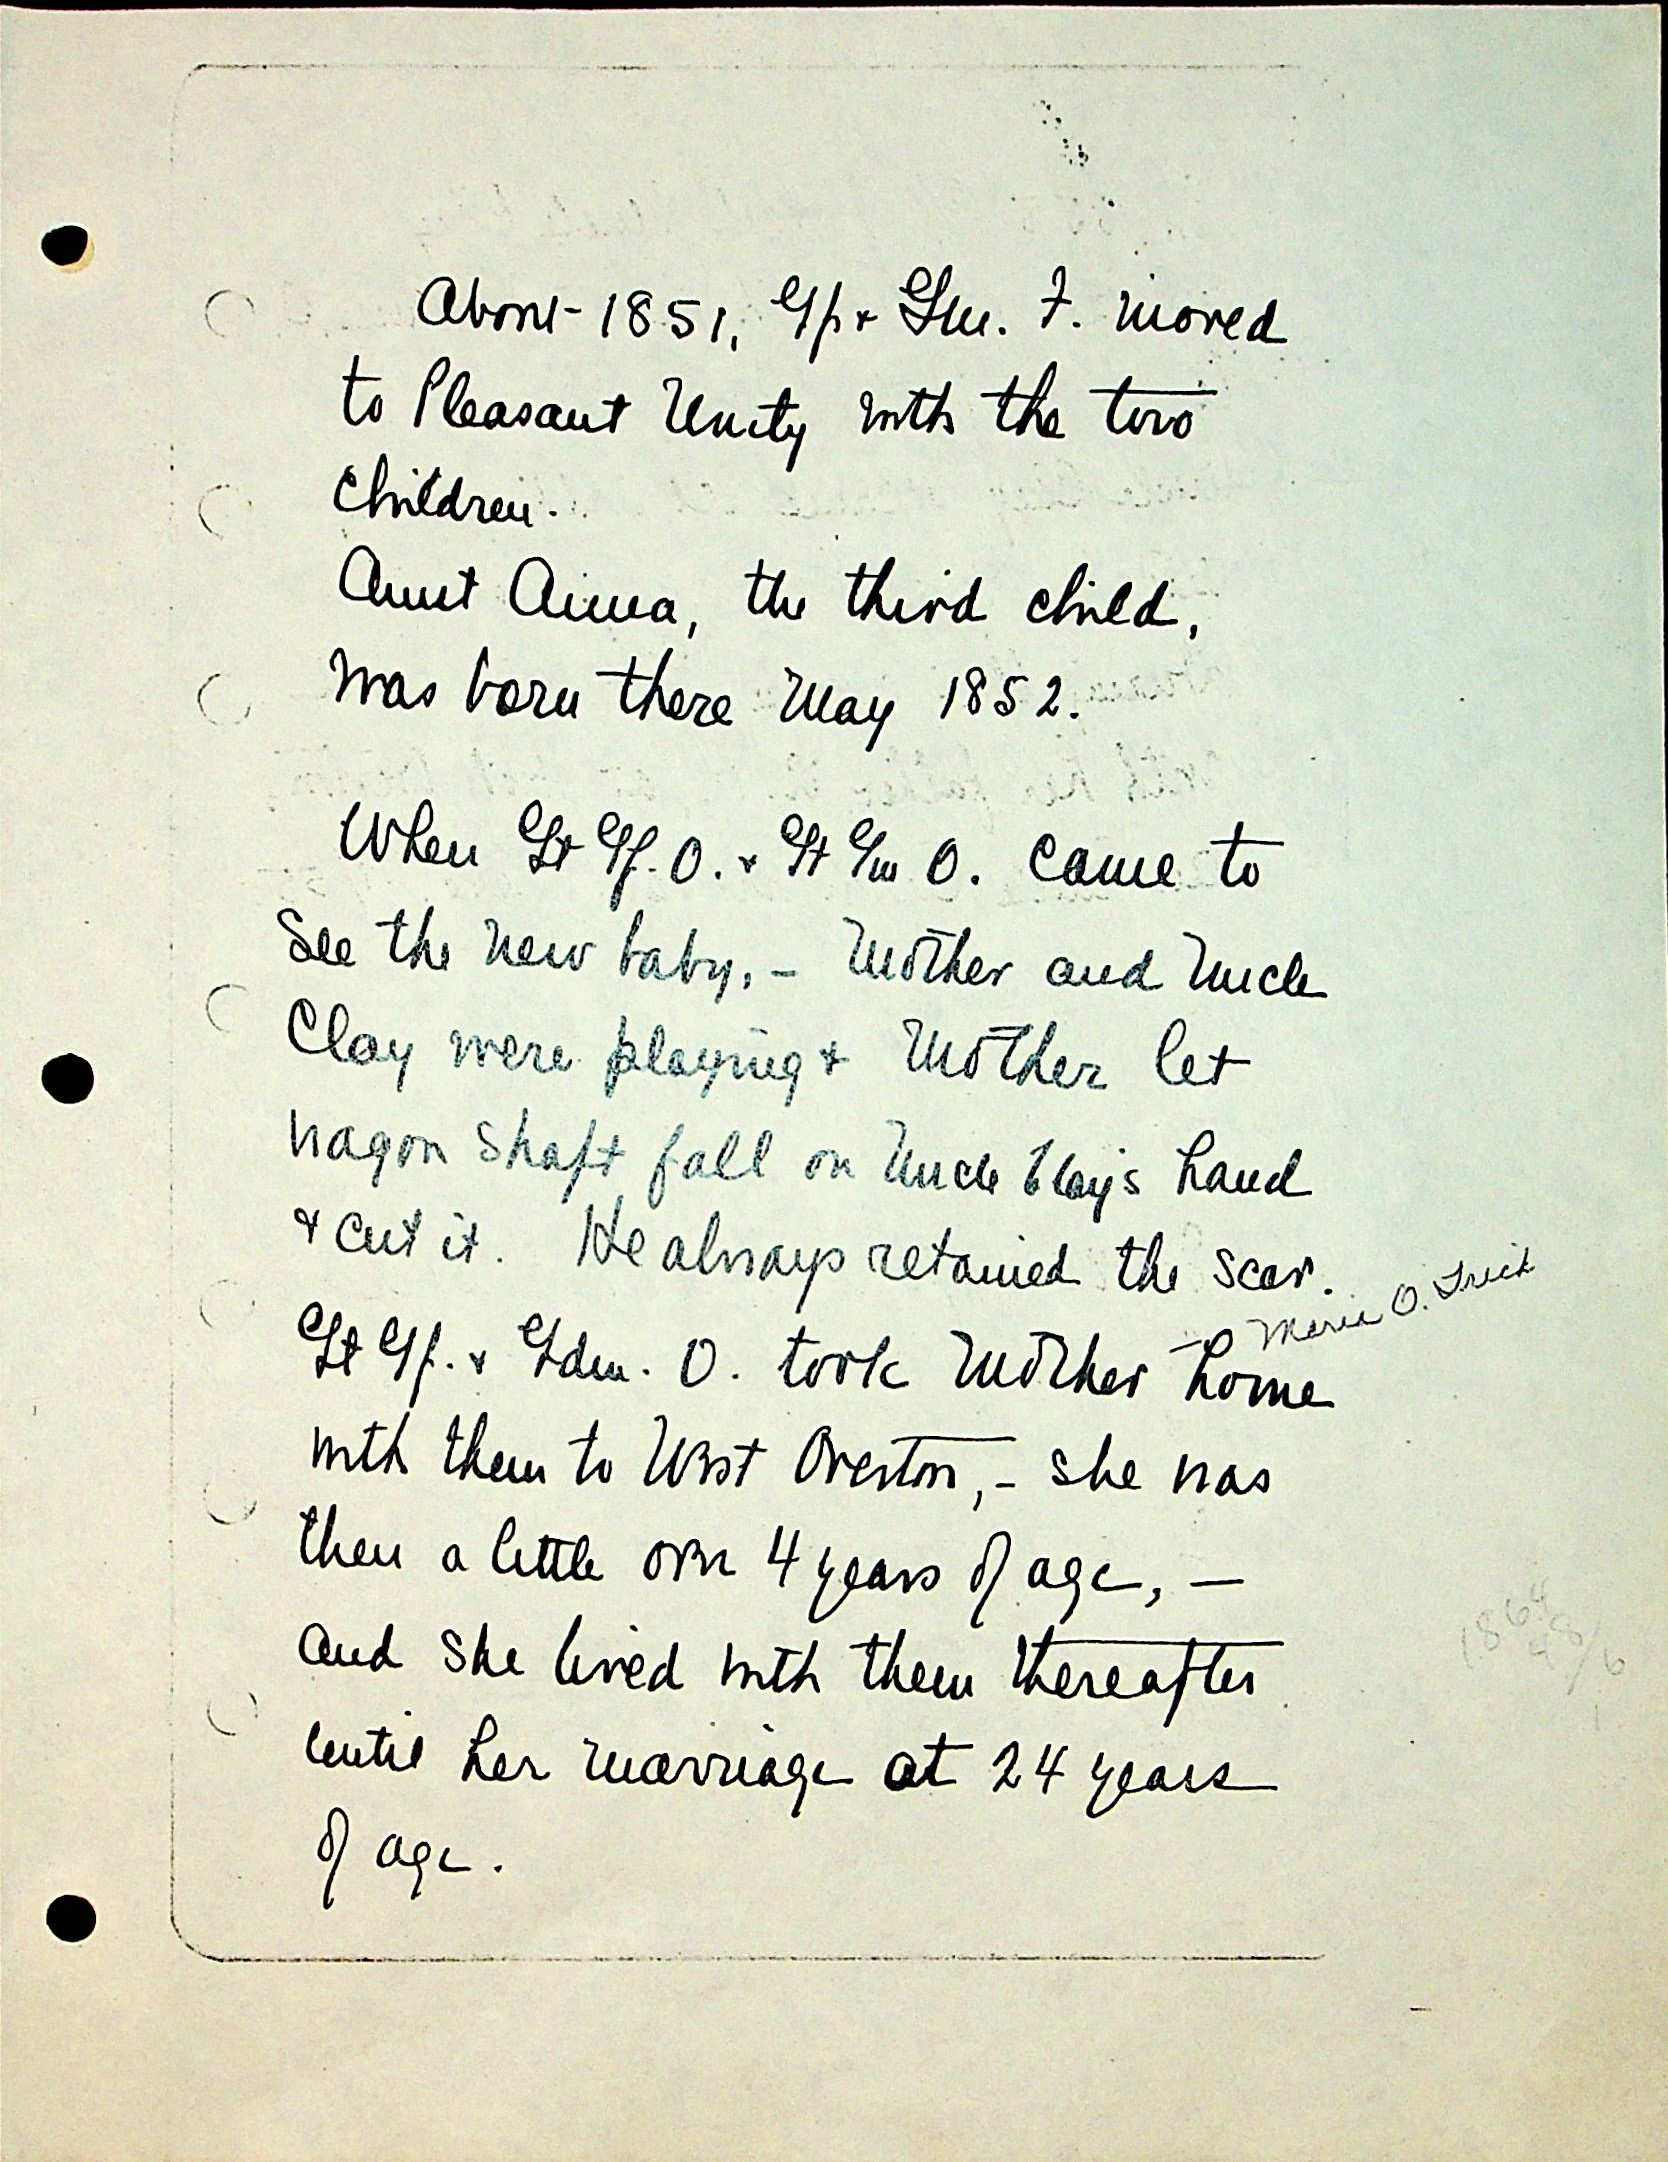 About 1851, Gp & Gm. F. moved
to Pleasant Unity with the two
children.
Aunt Anna, the third child,
was born there May 1852.
When Gt Gf. O. & Gt Gm O. came to
see the new baby, - Mother and Uncle
Clay were playing & Mother let
wagon shaft fall on Uncle Clay's hand
& cut it. He always retained the scar.
- Maria O. Frick
Gt Gf. & Gdm. O. took Mother home
with them to West Overton, - she was
then a little over 4 years of age, -
and she lived with them thereafter
until her marriage at 24 years
of age.
1864
48/6